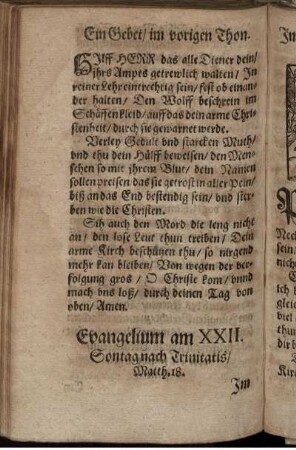 Ein Gebet/ im vorigen Thon.
HIlff HERR das alle Diener dein/
jhrs Ampts getrewlich walten/ In
reiner Lehr eintrechtig sein/ fest ob einan-
der halten/ Den Wolff beschrein im
Schaffenkleid/ auff das dein arme Chri-
stenheit/ durch sie gewarnet werde.
Verley Gedult vnd starcken Muth/
vnd thu dein Hülff beweisen/ den Men-
schen so mit jhrem Blut/ dein Namen
sollen preisen das sie getrost in aller Pein/
biß an das End bestendig sein/ vnd ster-
ben wie die Christen.
Sih auch den Mord die leng nicht
an/ den lose Leut thun treiben/ Dein
arme Kirch beschützen thu/ so nirgend
mehr kan bleiben/ Von wegen der ver-
folgung gros/ O Christe kom/ vnnd
mach vns loß/ durch deinen Tag von
oben/ Amen.
Evangelium am XXII.
Sontag nach Trinitatis/
Matth. 18.
Im